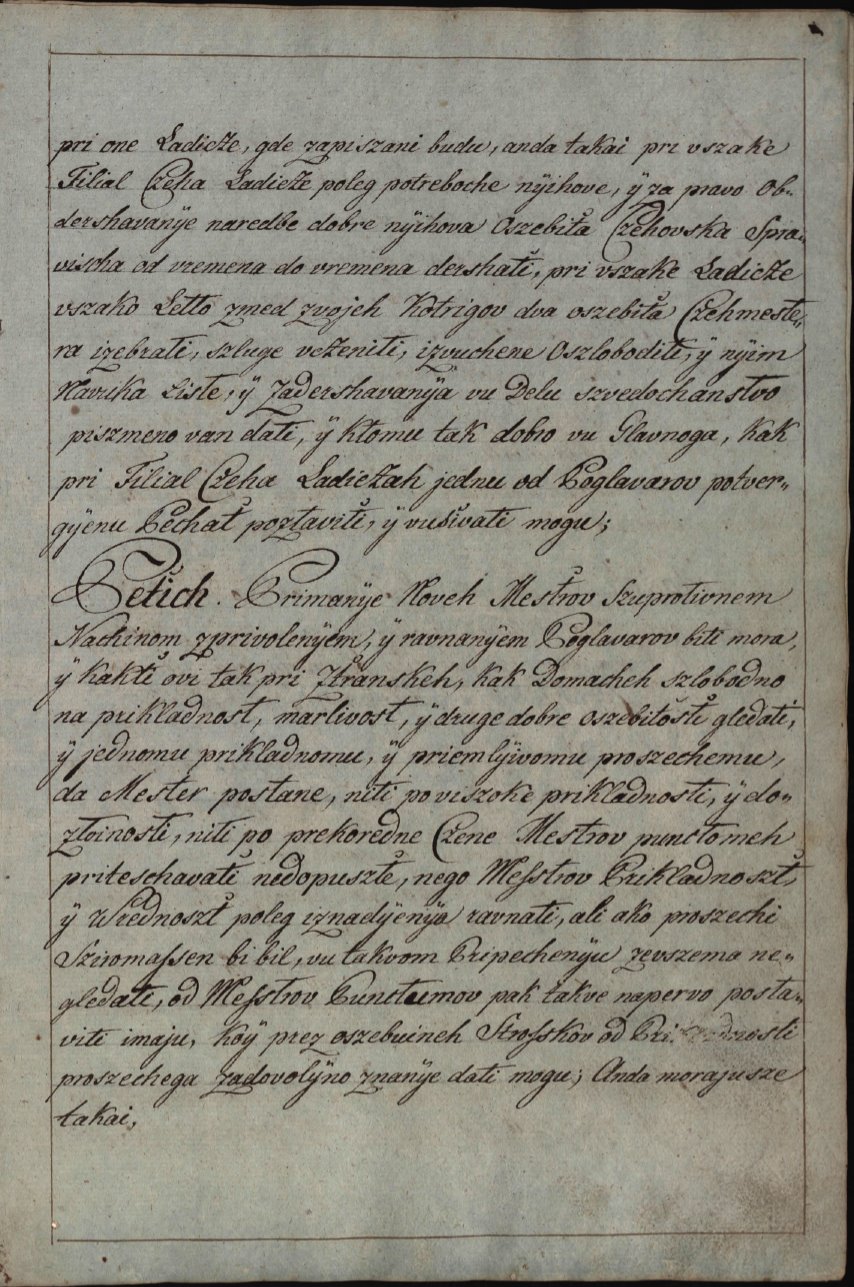 pri one Ladicze, gde zapiszani budu, anda takai pri vszake
Filial Czeha Ladicze poleg potreboche nÿihove, ÿ za pravo Ob-
dershavanÿe naredbe dobre nÿihova Oszebita Czehovska Spra-
vischa od vremena do vremena dershati, pri vszake Ladicze
vszako Letto zmed zvojeh Kotrigov dva oszebita Czehmeste-
ra izebrati, szluge vcheniti, izvuchene Oszloboditi, ÿ nÿim
Navuka Liste, ÿ Zadershavanÿa vu Delu szvedochanstvo
piszmeno van dati, ÿ ktomu tak dobro vu Glavnoga, kak
pri Filial Czeha Ladiczah jednu od Poglavarov potver-
gÿenu Pechat poztaviti, ÿ vusivati mogu;
Petich. Primanÿe Noveh Mestrov Szuprotivnem
Nachinom zprivolenÿem, ÿ ravnanÿem Poglavarov biti mora,
ÿ kakti ovi tak pri Ztranskeh, kak Domacheh szlobodno
na prikladnost, marlivost, ÿ druge dobre oszebitosti gledati,
ÿ jednomu prikladnomu, ÿ priemlÿivomu proszechemu,
da Mester postane, niti po viszoke prikladnosti, ÿ do-
ztoinosti, niti po prekoredne Czene Mestrov punctomeh
priteschavati nedopuszte, nego Messtrov Prikladnoszt,
ÿ Wrednoszt poleg iznadÿenÿa ravnati, ali ako proszechi
Sziromassen bi bil, vu takvom Pripechenÿu zevszema ne-
gledati, od Messtrov Punctumov pak takve napervo posta-
viti imaju, koÿ prez oszebuineh Strosskov od
proszechega zadovolÿno znanÿe dati mogu; Anda morajusze
takai,